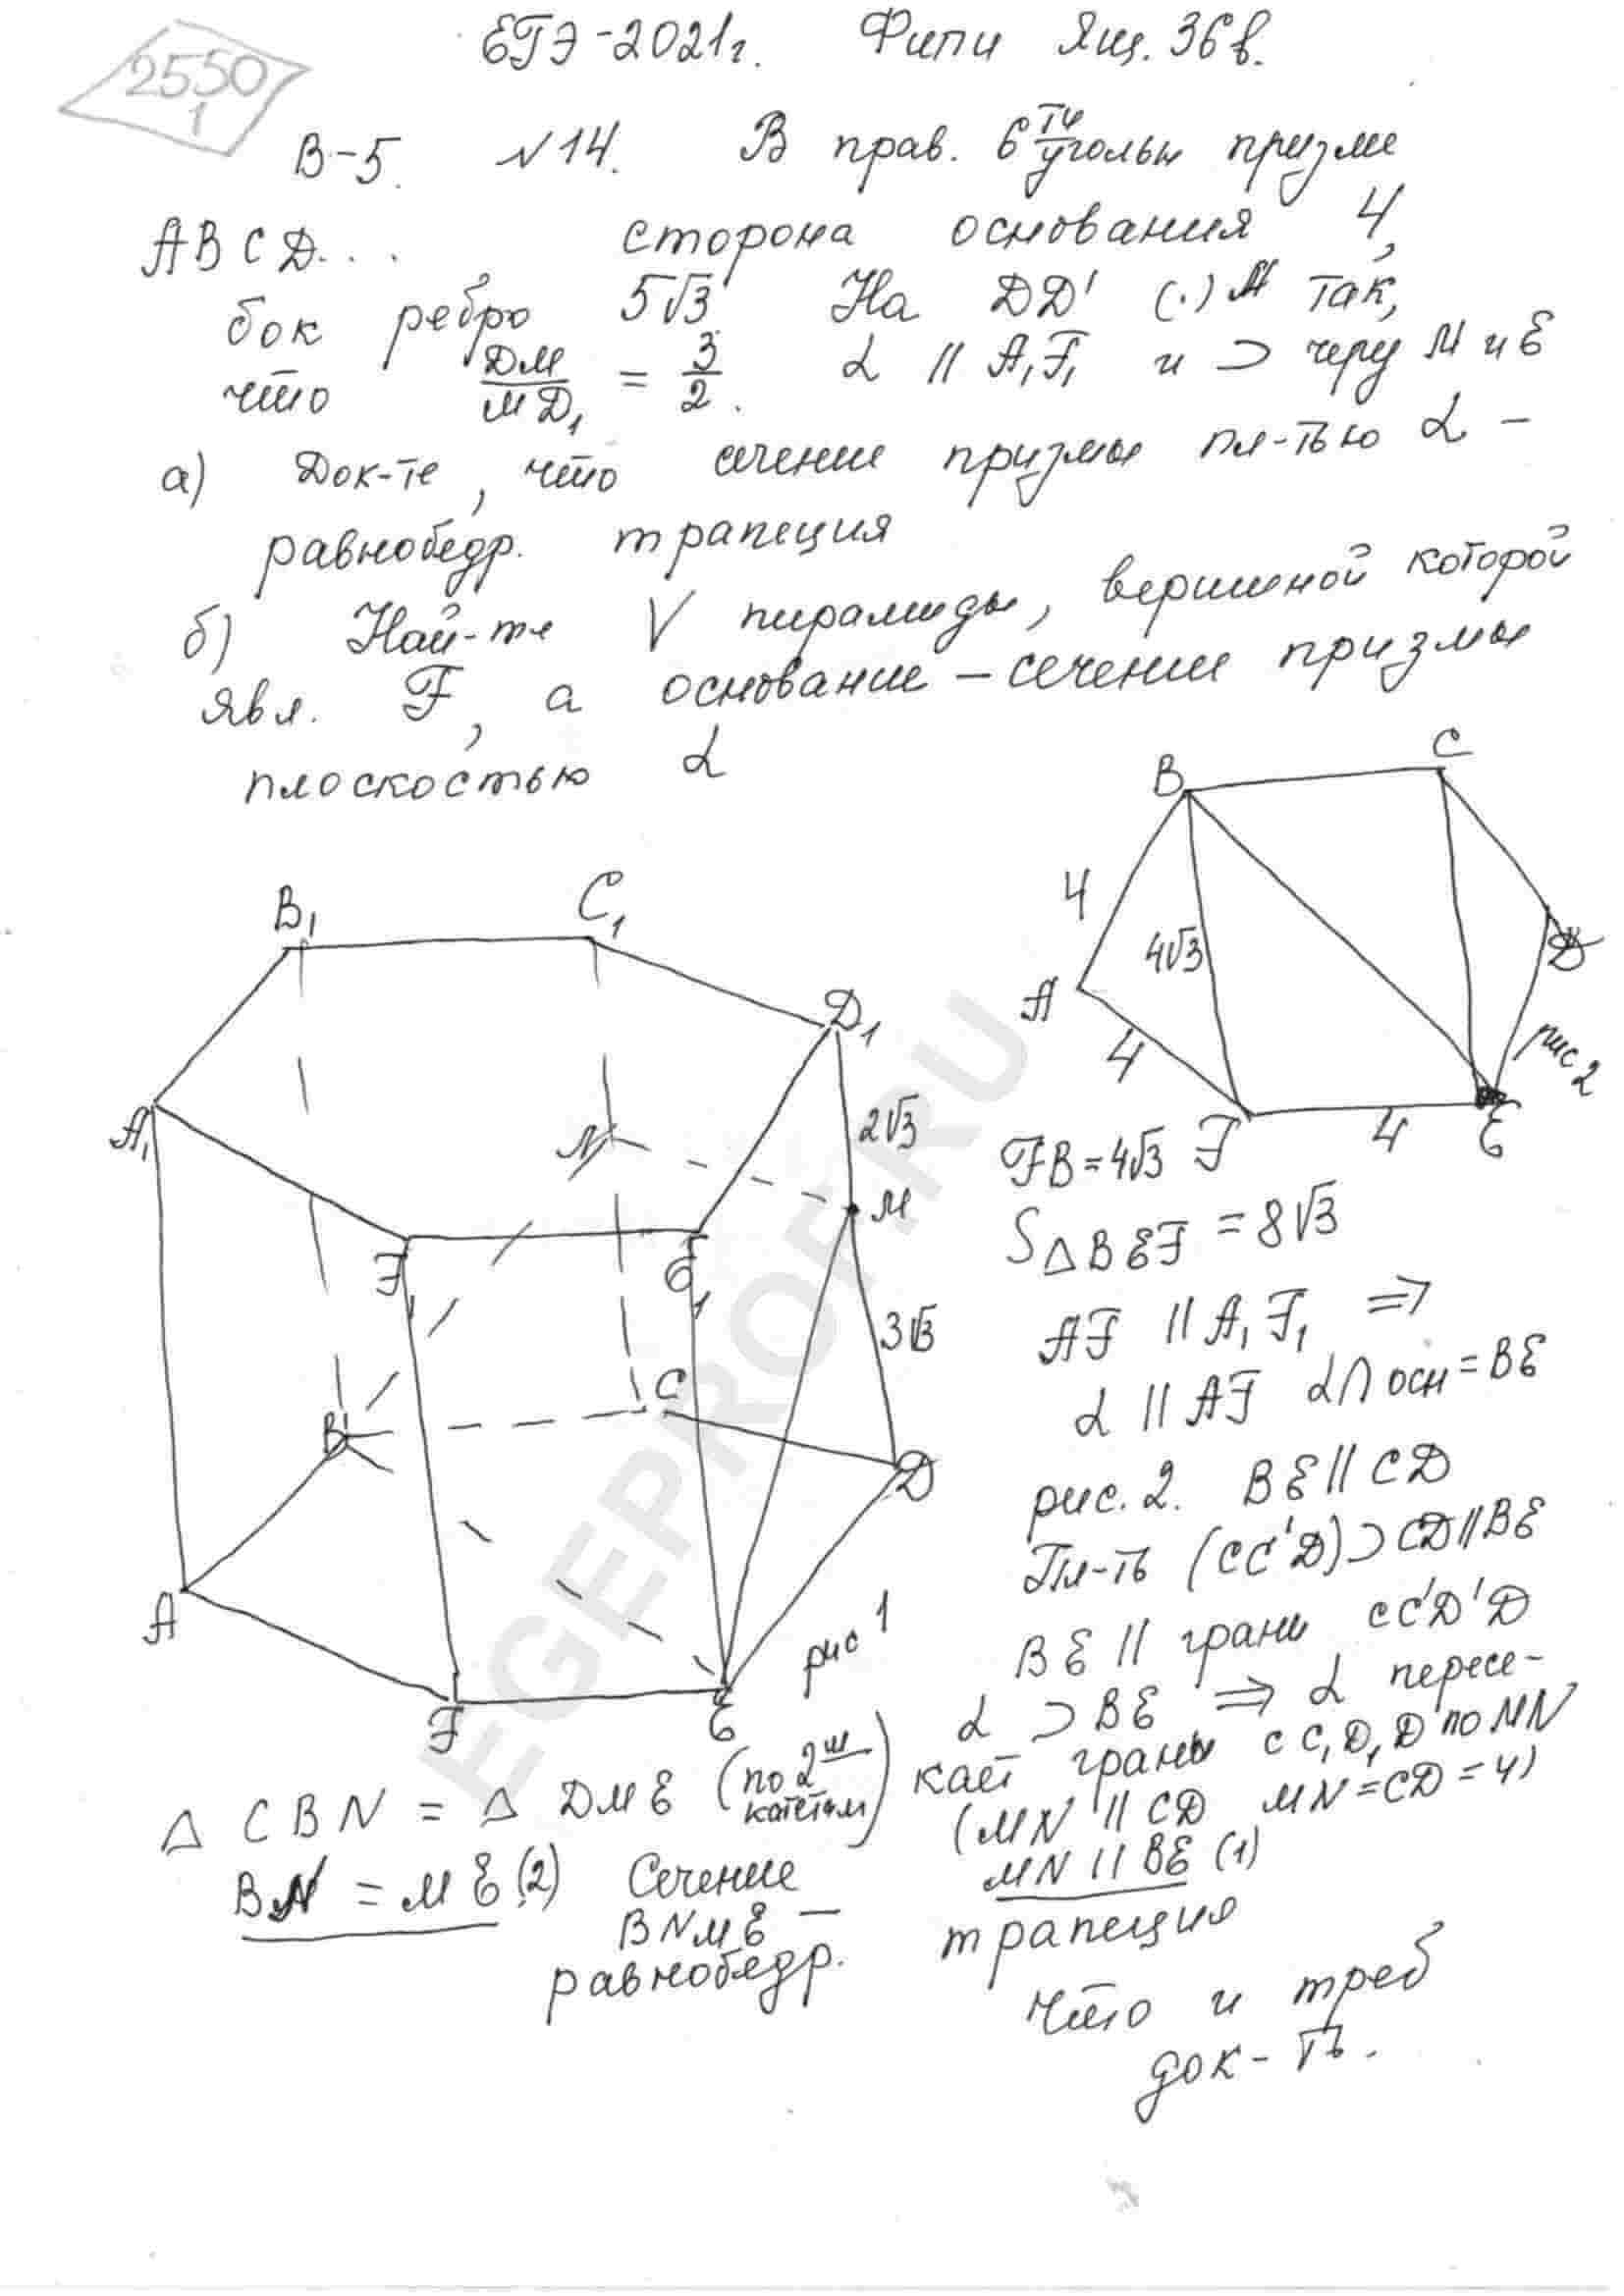 2550
1
ЕГЭ-2021г. Фипи Ящ. 36в.
В-5. №14. В прав. 6 угольн призме
ABCD... сторона основания 4,
бок ребро 5√3 На DD' (·) M так,
что DM/MD₁ = 3/2. α || A₁F₁ и ⊃ через M и E
а) Док-те, что сечение призмы пл-тью α –
равнобедр. трапеция
б) Най-те V пирамиды, вершиной которой
явл. F, а основание – сечение призмы
плоскостью α
B C
4 4√3
A D
4 рис 2
F 4 E
B₁ C₁
D₁
A₁ N 2√3
M
F₁ E₁
3√3
B C
D
A
F E рис 1
FB = 4√3
S △BEF = 8√3
AF || A₁F₁ ⇒
α || AF α∩осн = BE
рис. 2. BE || CD
Пл-ть (CC'D) ⊃ CD || BE
BE || грани CC'D'D
α ⊃ BE ⇒ α пересе-
кает грань CC₁D₁D по MN
(MN || CD MN = CD = 4)
MN || BE (1)
△ CBN = △ DME (по 2ум катетам)
BN = ME (2) Сечение
BNME –
равнобедр. трапеция
что и треб
док-ть.
EGEPROF.RU